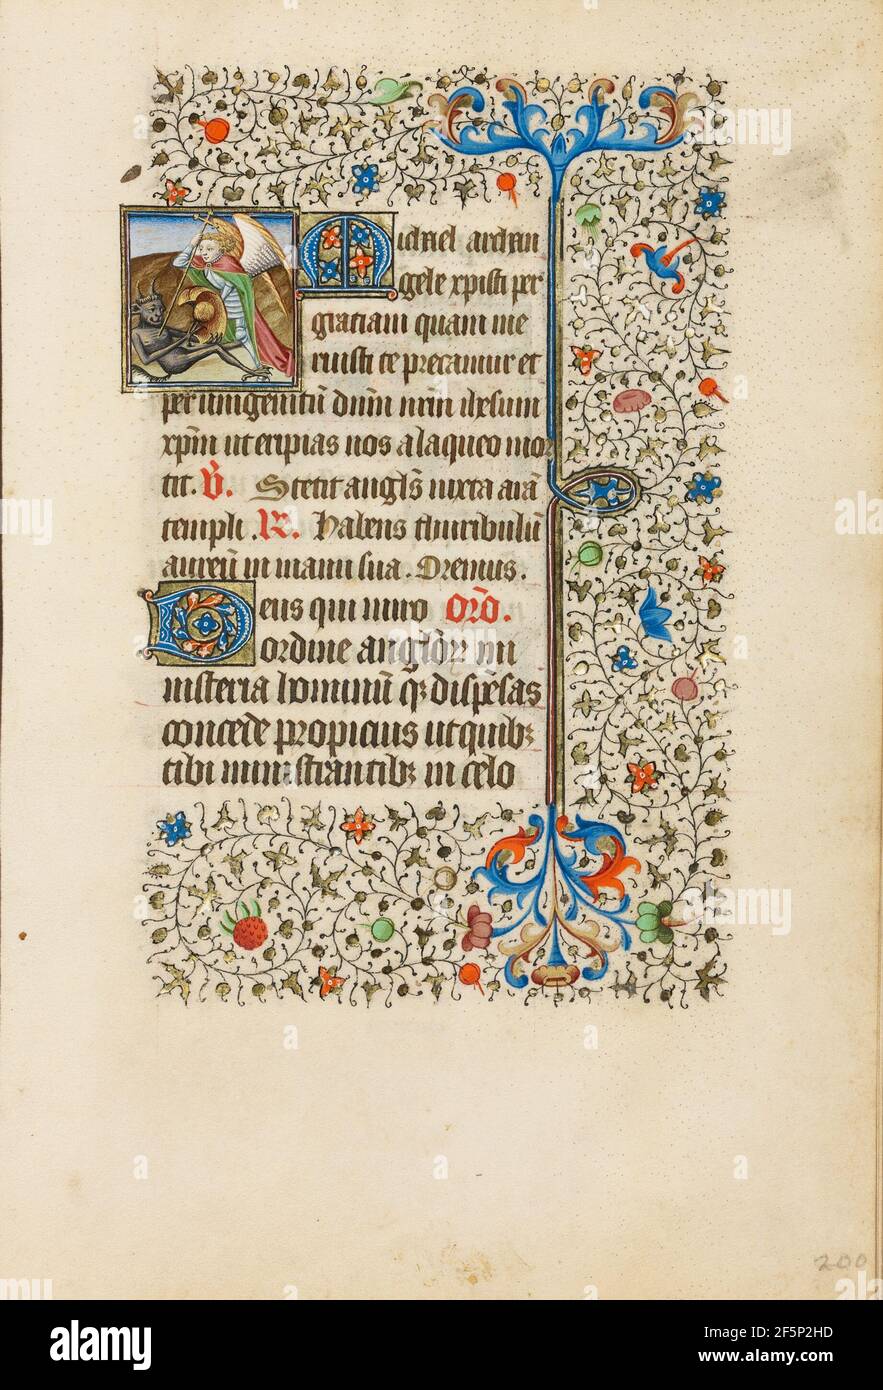 Michael archan
gele xpisti per
gratiam quam me
ruisti te precamur et
per unigenitū dnm̄ nrm̄ ihesum
xp̄m ut eripias nos a laqueo mor
tis. V̄. Stetit angls̄ iuxta arā
templi. R. Habens thuribulū
aureū in manu sua. Oremus.
Deus qui miro Or̄o.
ordine anglōrꝝ mi
nisteria hominūqꝫ dispēsas
concede propicius ut quibꝫ
tibi ministrantibꝫ in celo
200
alamy
Image ID: 2F5P2HD
www.alamy.com